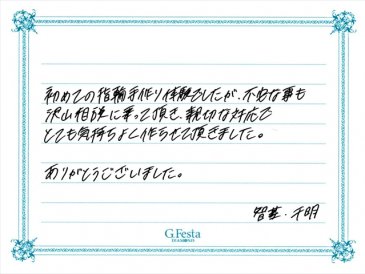 初めての指輪手作り体験でしたが、不安な事も
沢山相談に乗って頂き、親切な対応で
とても気持ちよく作らせて頂きました。
ありがとうございました。
智基・千明
G.Festa
DIAMONDS